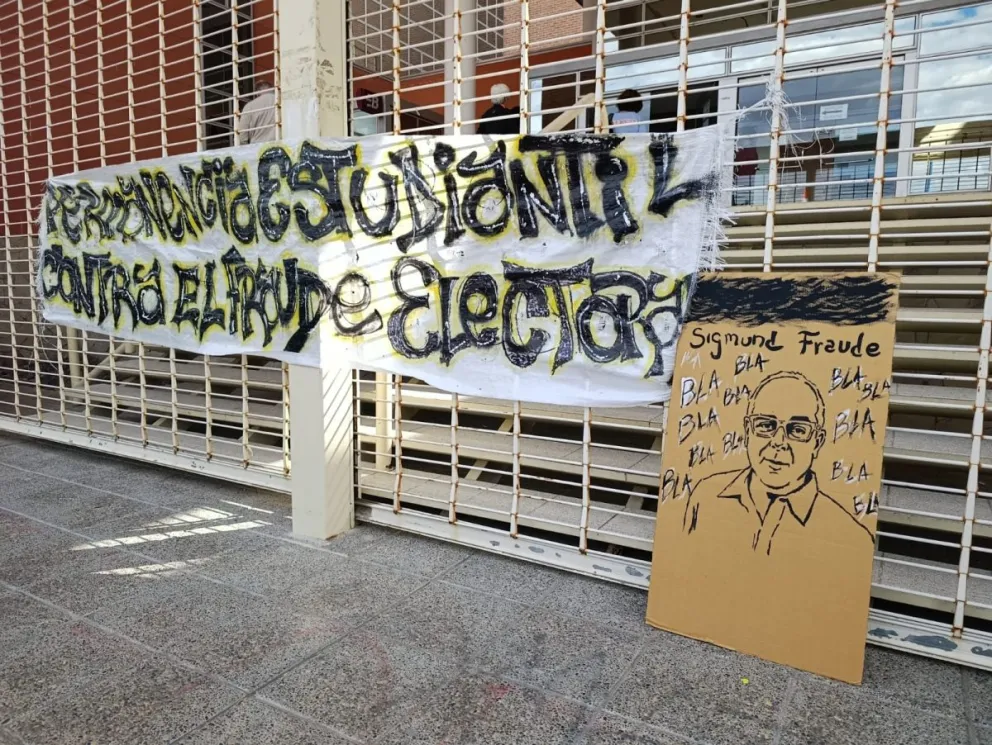 PERMANENCIA ESTUDIANTIL
CONTRA EL FRAUDE ELECTORA
Sigmund Fraude
BLA
BLA BLA BLA BLA
BLA BLA BLA
BLA BLA
BLA BLA